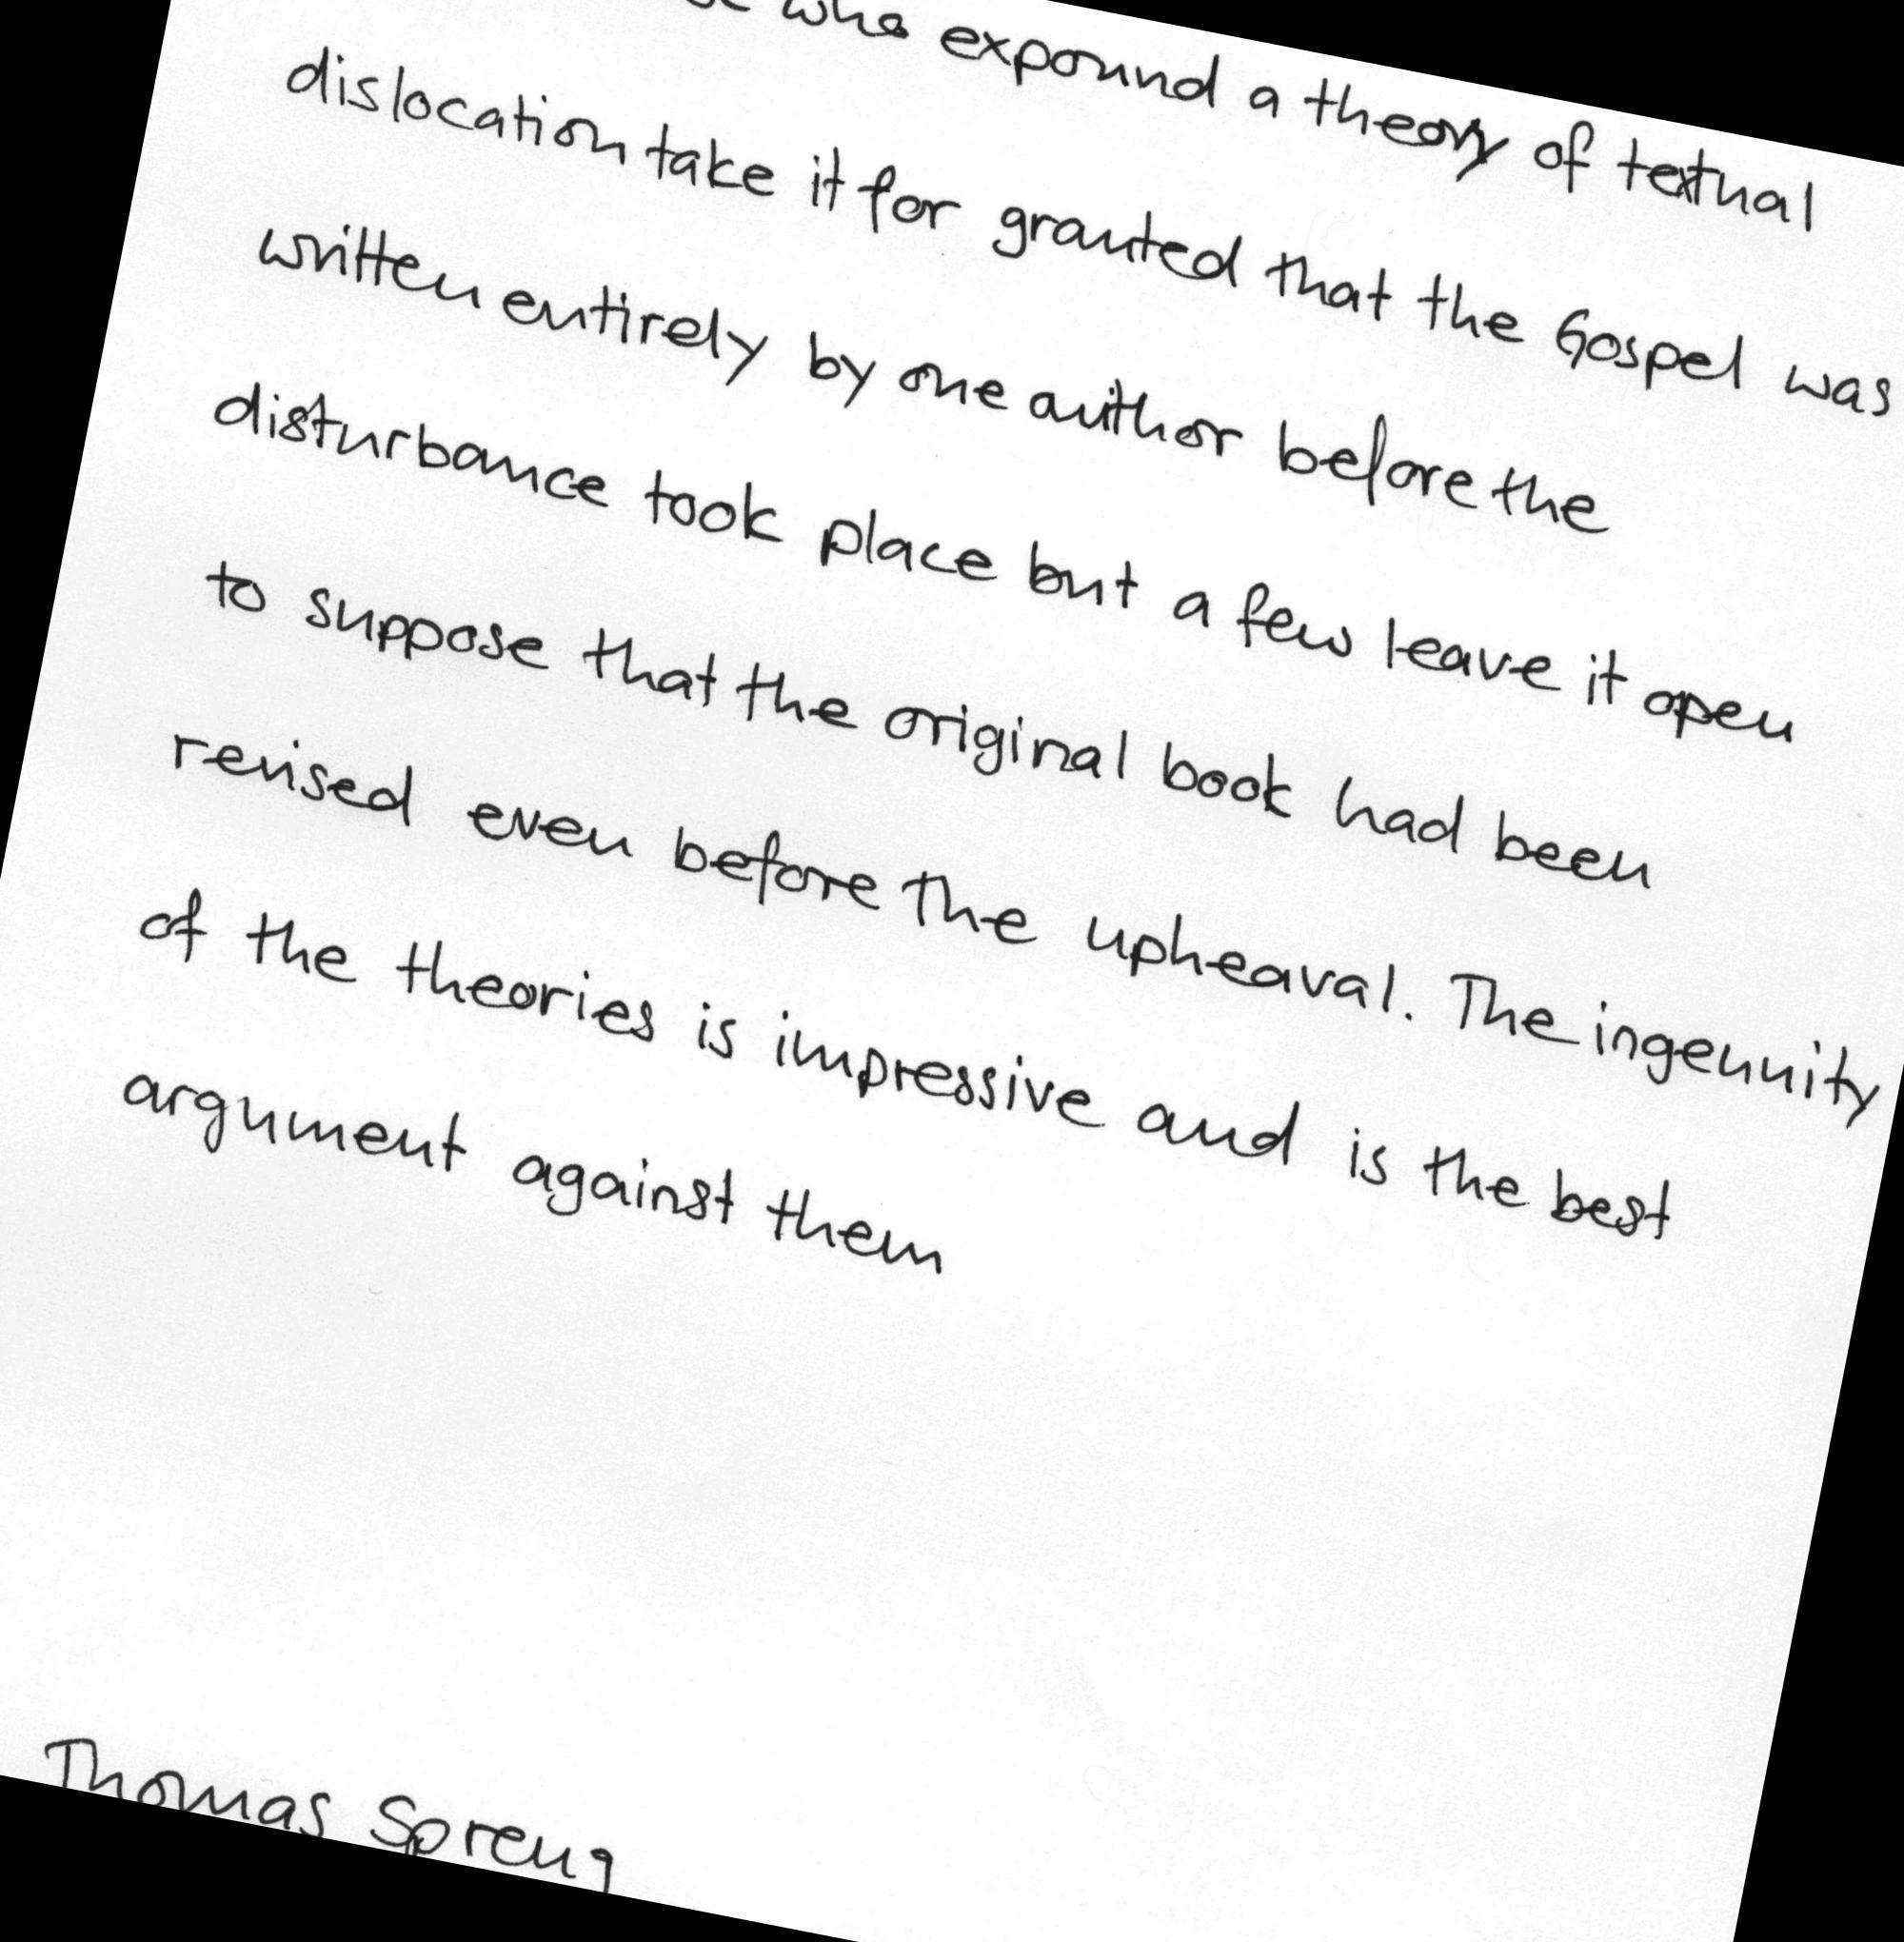 who expound a theory of textual
dislocation take it for granted that the Gospel was
written entirely by one author before the
disturbance took place but a few leave it open
to suppose that the original book had been
revised even before the upheaval. The ingenuity
of the theories is impressive and is the best
argument against them
Thomas Spreng